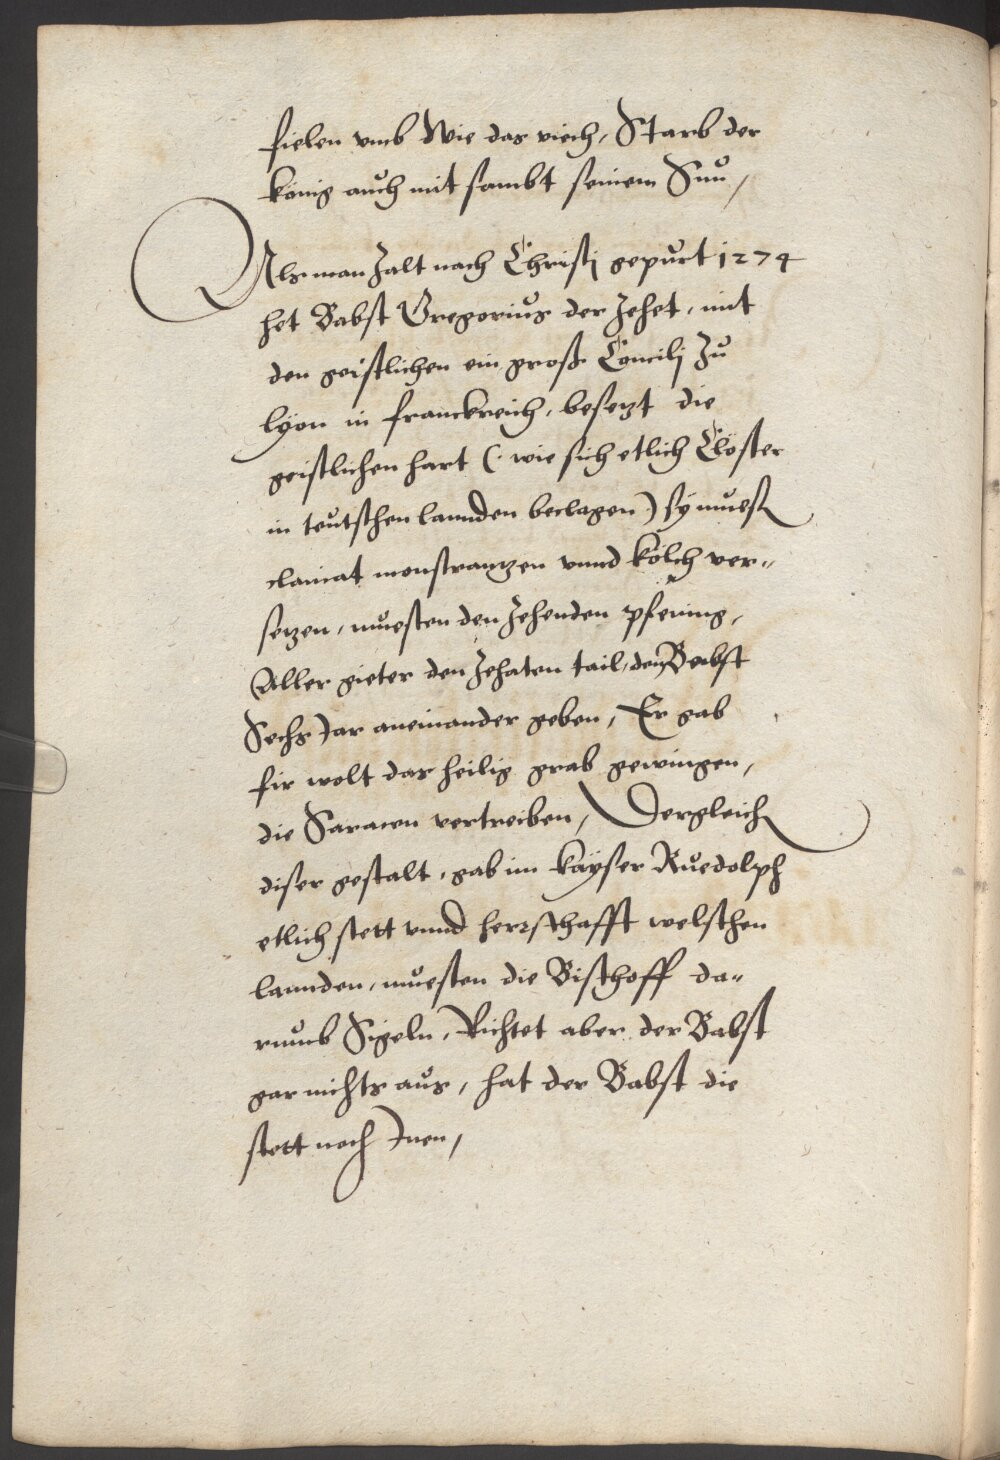 fielen vmb Wie das viech, Starb der
könig auch mit sambt seinem Sun,
Als man Zalt nach Christj gepurt 1274
het Babst Gregorius der Zehet, mit
den geistlichen ein gross Concilj Zu
lyon in franckreich, besetzt die
geistlichen hart (: wie sich etlich Clöster
in teutschen lannden beclagen) sy muest
clainat monstrantzen vnnd kölch ver„
setzen, muesten den Zehenden pfening,
Aller gieter den Zehaten tail, dem Babst
Sechs Jar aneinander geben, Er gab
fir wolt das heilig grab gewingen,
die Saracen vertreiben, Dergleich
diser gestalt, gab im kayser Ruedolph
etlich stett vnnd herrschafft welschen
lannden, muesten die Bischoff da„
rumb Sigeln, Richtet aber der Babst
gar nichts aus, hat der Babst die
stett noch Jnen,